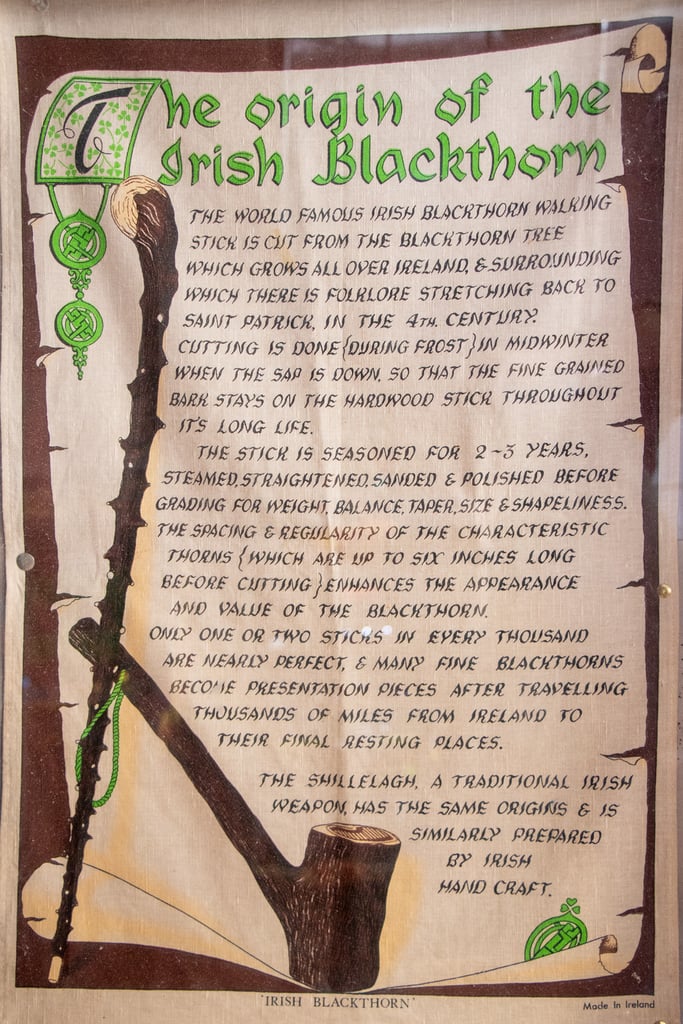 The origin of the
Irish Blackthorn
THE WORLD FAMOUS IRISH BLACKTHORN WALKING
STICK IS CUT FROM THE BLACKTHORN TREE
WHICH GROWS ALL OVER IRELAND, & SURROUNDING
WHICH THERE IS FOLKLORE STRETCHING BACK TO
SAINT PATRICK, IN THE 4TH. CENTURY.
CUTTING IS DONE {DURING FROST} IN MIDWINTER
WHEN THE SAP IS DOWN, SO THAT THE FINE GRAINED
BARK STAYS ON THE HARDWOOD STICK THROUGHOUT
IT'S LONG LIFE.
THE STICK IS SEASONED FOR 2~3 YEARS,
STEAMED, STRAIGHTENED, SANDED & POLISHED BEFORE
GRADING FOR WEIGHT, BALANCE, TAPER, SIZE & SHAPELINESS.
THE SPACING & REGULARITY OF THE CHARACTERISTIC
THORNS {WHICH ARE UP TO SIX INCHES LONG
BEFORE CUTTING} ENHANCES THE APPEARANCE
AND VALUE OF THE BLACKTHORN.
ONLY ONE OR TWO STICKS IN EVERY THOUSAND
ARE NEARLY PERFECT, & MANY FINE BLACKTHORNS
BECOME PRESENTATION PIECES AFTER TRAVELLING
THOUSANDS OF MILES FROM IRELAND TO
THEIR FINAL RESTING PLACES.
THE SHILLELAGH, A TRADITIONAL IRISH
WEAPON, HAS THE SAME ORIGINS & IS
SIMILARLY PREPARED
BY IRISH
HAND CRAFT.
'IRISH BLACKTHORN'
Made In Ireland